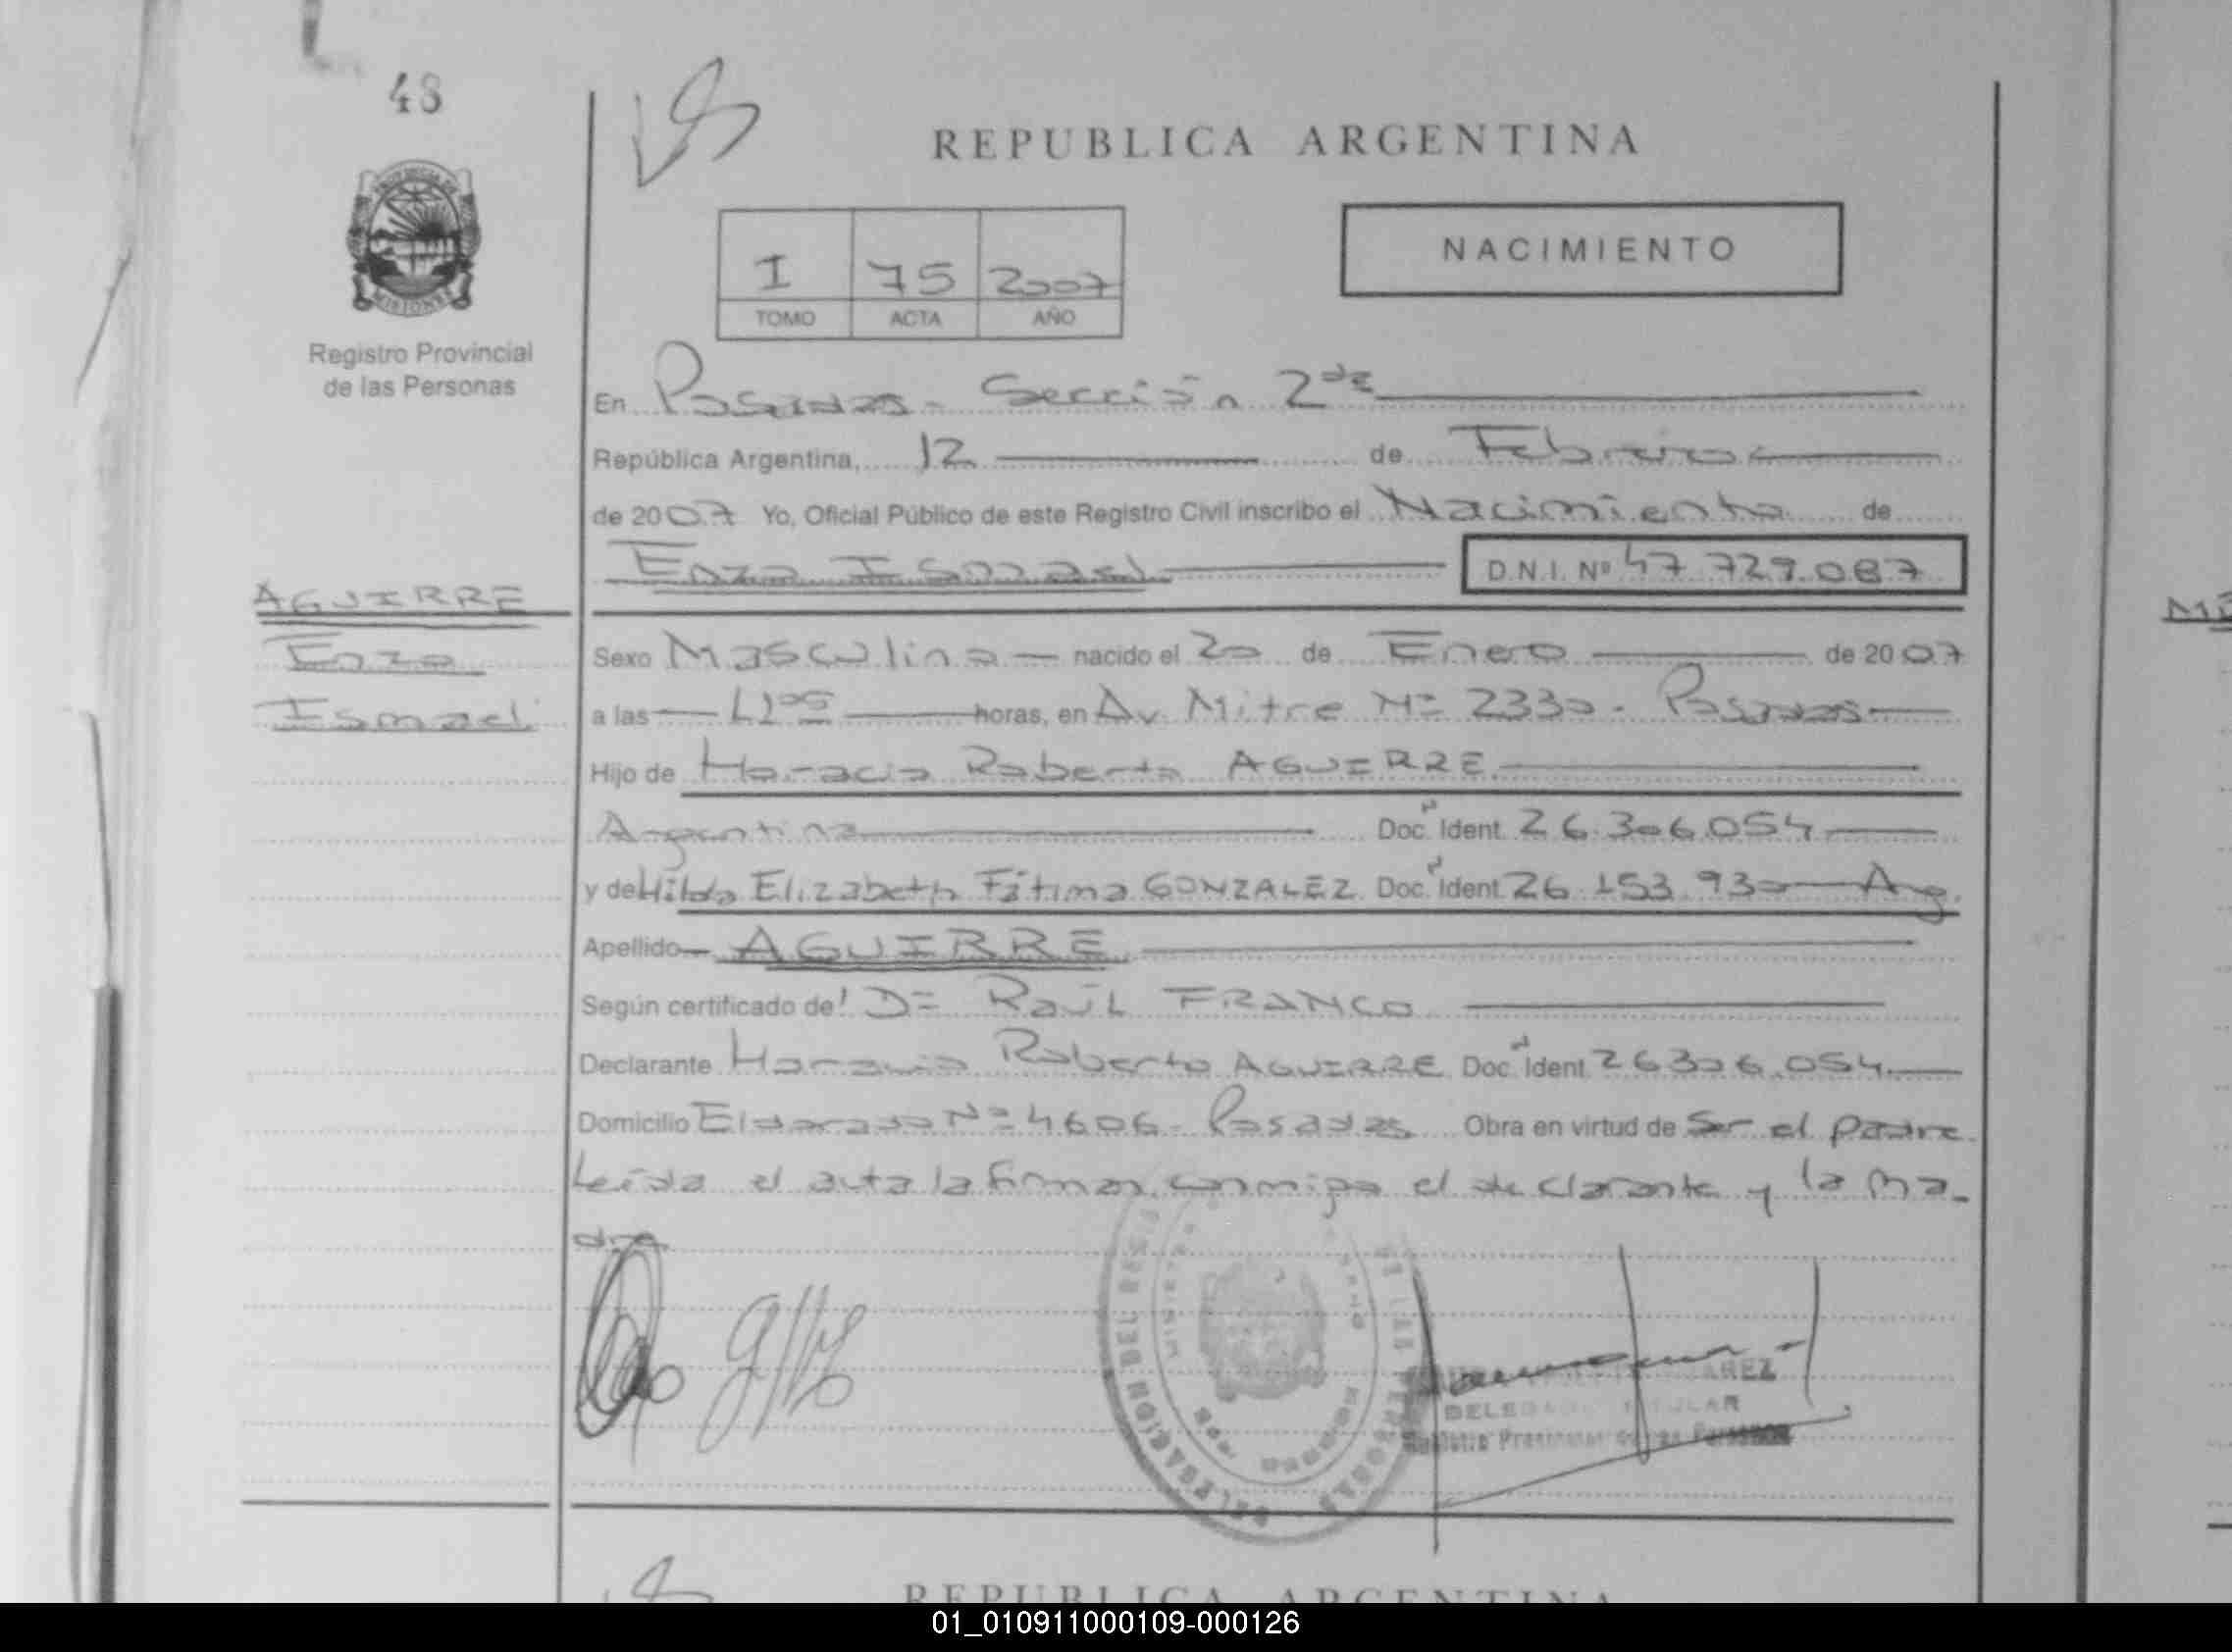 48
REPUBLICA ARGENTINA
PROVINCIA DE
MISIONES
NACIMIENTO
I 75 2007
TOMO ACTA AÑO
Registro Provincial
de las Personas
En Posadas - Sección 2da
República Argentina, 12 de Febrero
de 2007 Yo, Oficial Público de este Registro Civil inscribo el Nacimiento de
Enzo Ismael D.N.I. Nº 47.729.087
AGUIRRE
Enzo
Ismael
Sexo Masculino nacido el 20 de Enero de 2007
a las horas, en Av. Mitre Nº 2330 - Posadas
Hijo de Horacio Roberto AGUIRRE
Argentina Doc. Ident. 26.306.054
y de Hilda Elizabeth Fátima GONZALEZ Doc. Ident. 26.153.930 Arg.
Apellido AGUIRRE
Según certificado de: Dr. Raúl FRANCO
Declarante Horacio Roberto AGUIRRE Doc. Ident. 26306.054
Domicilio Eldorado Nº 4606 - Posadas Obra en virtud de ser el padre.
Leída el acta la firman conmigo el declarante y la ma-
dre
DELEGACION DEL REGISTRO DE LAS PERSONAS
DELEGADO TITULAR
Registro Provincial de las Personas
REPUBLICA ARGENTINA
01_010911000109-000126